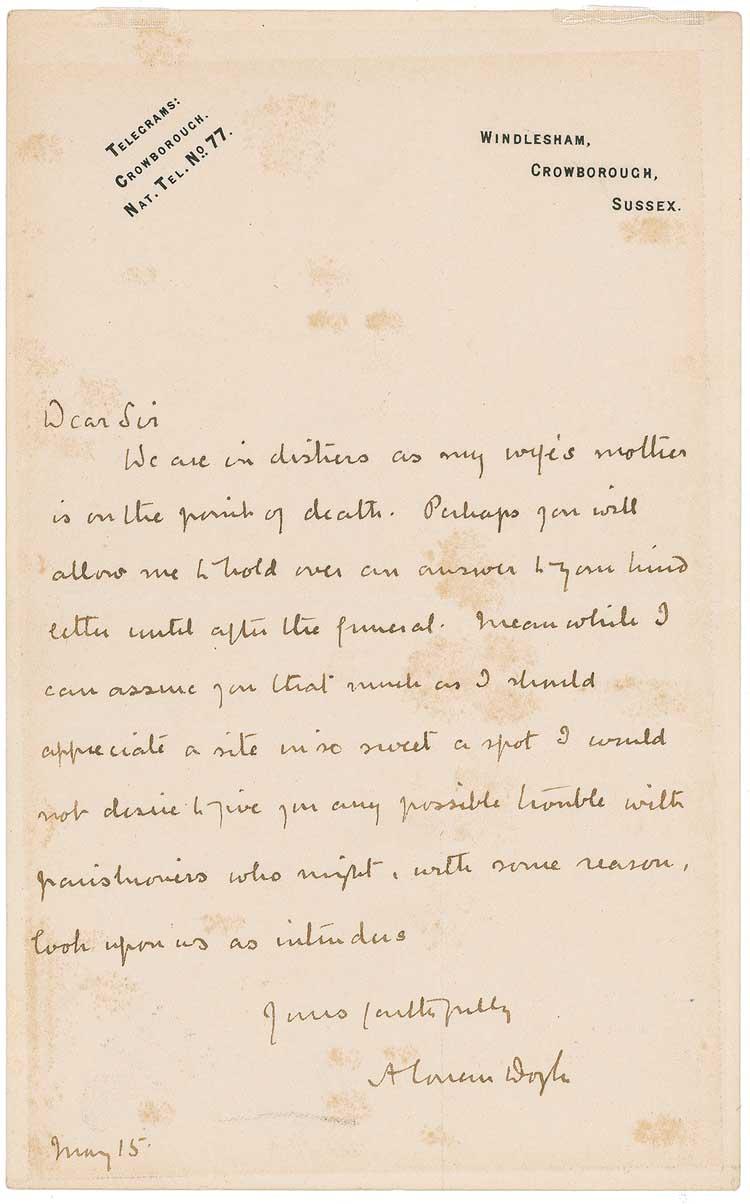 TELEGRAMS:
CROWBOROUGH.
NAT. TEL. No. 77.
WINDLESHAM,
CROWBOROUGH,
SUSSEX.
Dear Sir
We are in distress as my wife's mother
is on the point of death. Perhaps you will
allow me to hold over an answer to your kind
letter until after the funeral. Meanwhile I
can assure you that much as I should
appreciate a site in so sweet a spot I would
not desire to give you any possible trouble with
parishioners who might, with some reason,
look upon us as intruders
Yours faithfully
A Conan Doyle
May 15.